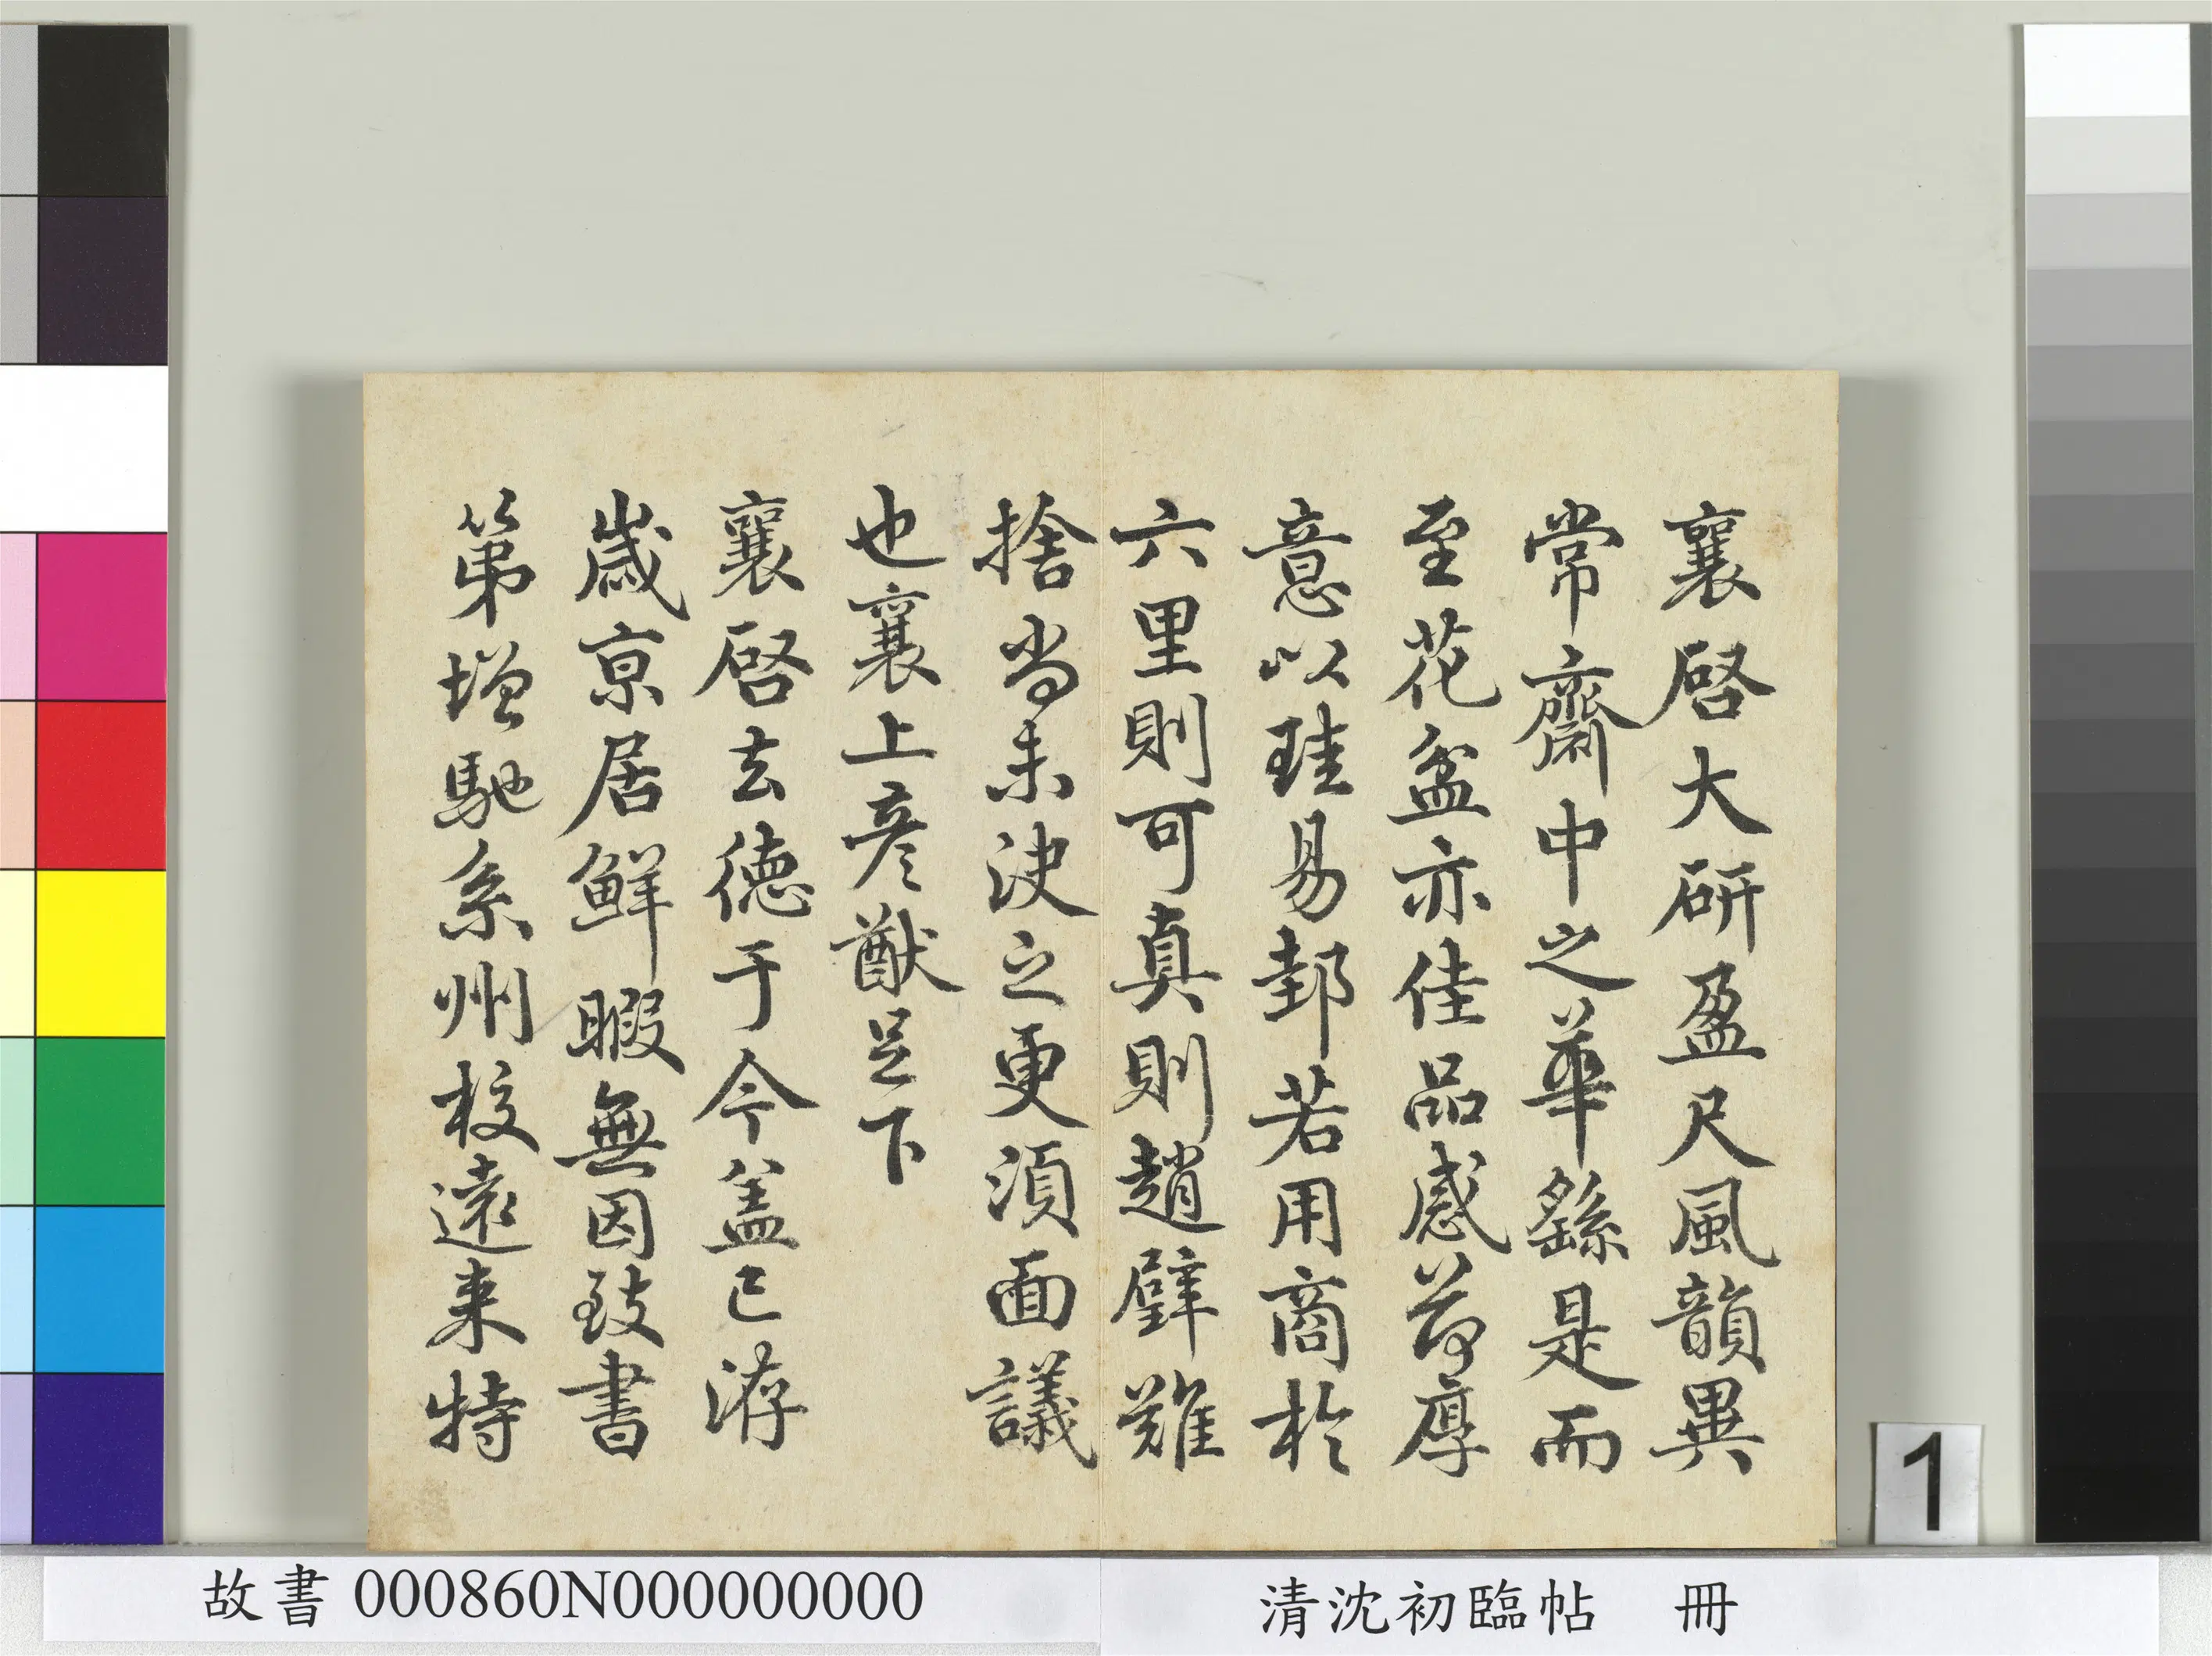 襄啓大研盈尺風韻異
常齋中之華繇是而
至花盆亦佳品感荷厚
意以珪易邽若用商於
六里則可真則趙璧難
捨尚未決之更須面議
也襄上彦猷足下
襄啓去德于今盖已洊
歲京居鮮暇無因致書
第增馳系州校遠来特
1
故書 000860N000000000
清沈初臨帖 冊